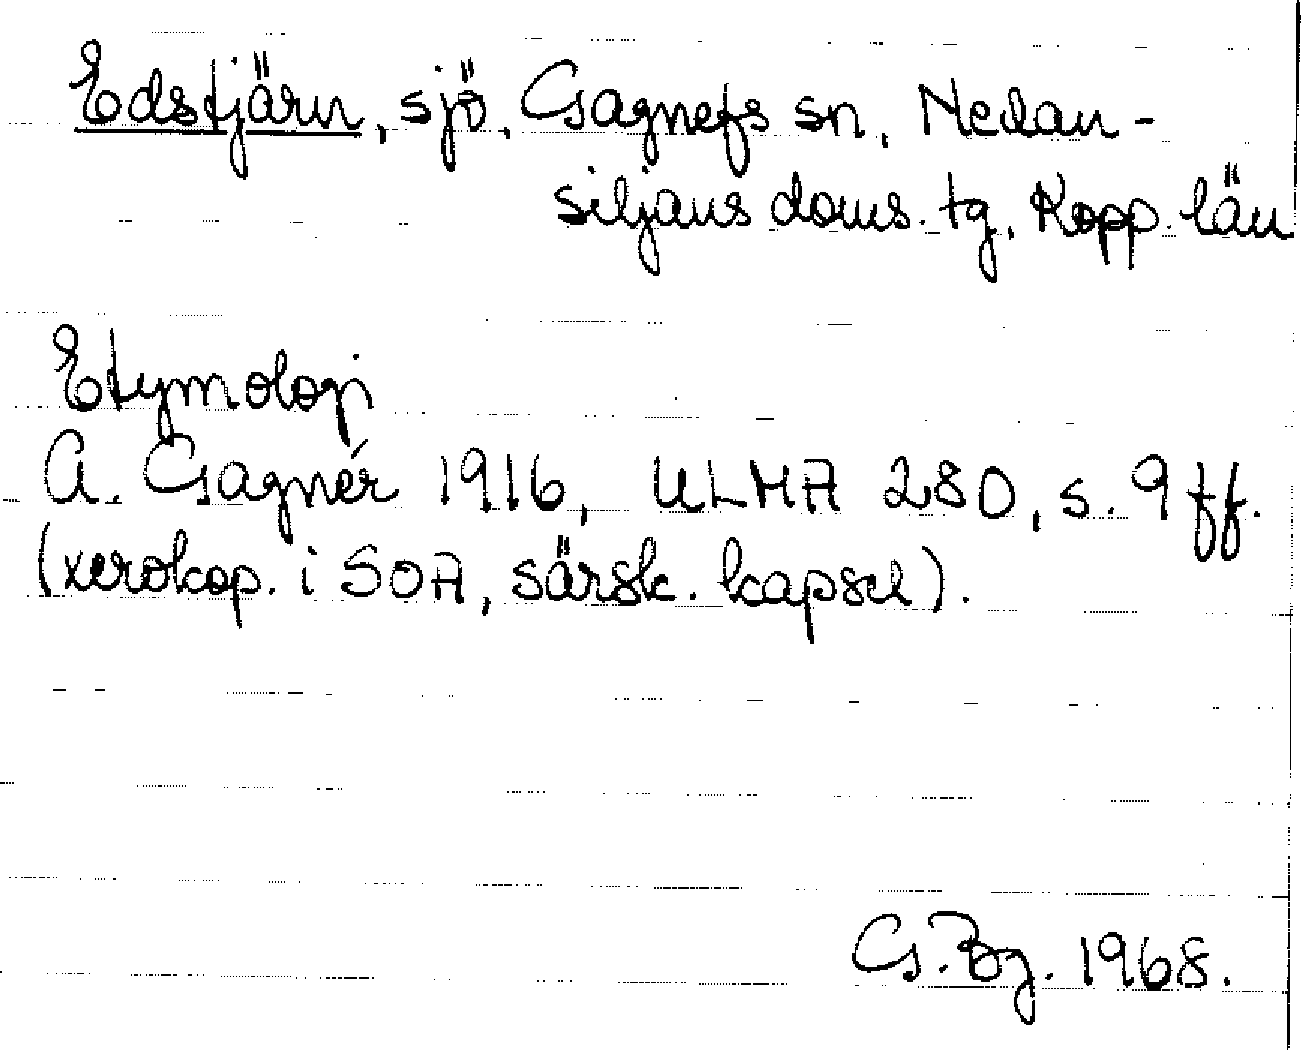 Edstjärn, sjö, Gagnefs sn, Nedan-
siljans doms. tg, Kopp. län
Etymologi
A. Gagnér 1916, ULMA 280, s. 9 ff.
(xerokop. i SOA, särsk. kapsel).
G. Bg. 1968.